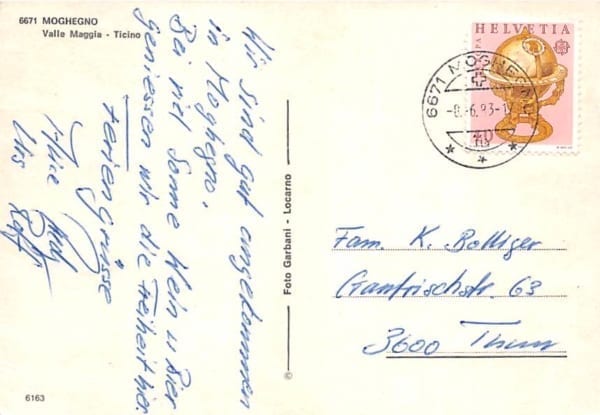 6671 MOGHEGNO
Valle Maggia - Ticino
Wir sind gut angekommen
in Moghegno.
Bei viel Sonne Wein u Bier
geniessen wir die Freiheit hier.
Feriengrüsse
Alice
Urs
Foto Garbani - Locarno
©
6163
HELVETIA
EUROPA
6671 MOGHEGNO
-8.-6.83-1
Fam. K. Bolliger
Gantrischstr. 63
3600 Thun